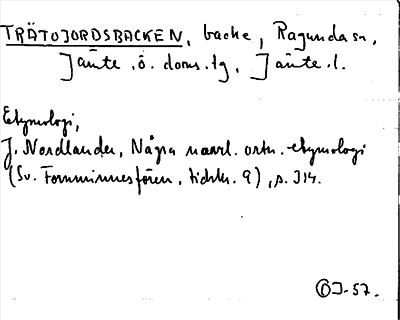 TRÄTOJORDSBACKEN, backe, Ragunda sn,
Jämte. ö. doms. tg, Jämte. l.
Etymologi,
J. Nordlander, Några norrl. ortn. etymologi
(Sv. Fornminnesfören. tidskr. 9), s. 314.
ÖJ-57.